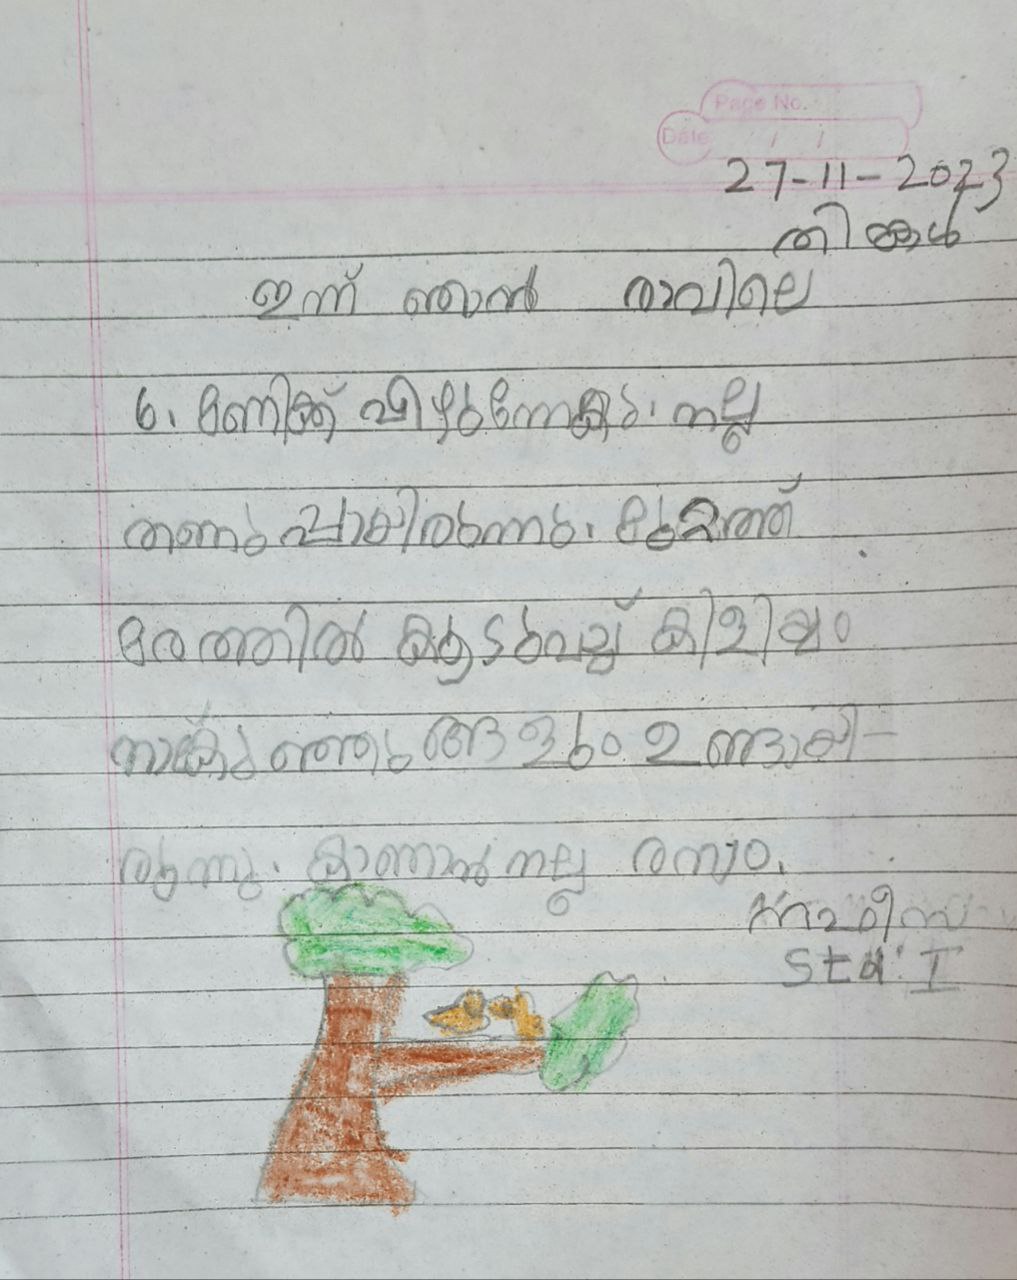 Page No.
Date / /
27-11-2023
തിങ്കൾ
ഇന്ന് ഞാൻ രാവിലെ
6. മണിക്ക് എഴുന്നേറ്റു. നല്ല
തണുപ്പായിരുന്നു. മുറ്റത്ത്
മരത്തിൽ കൂടുവച്ച് കിളിയും
കുഞ്ഞുങ്ങളും ഉണ്ടായി-
രുന്നു. കാണാൻ നല്ല രസാ.
Std: I